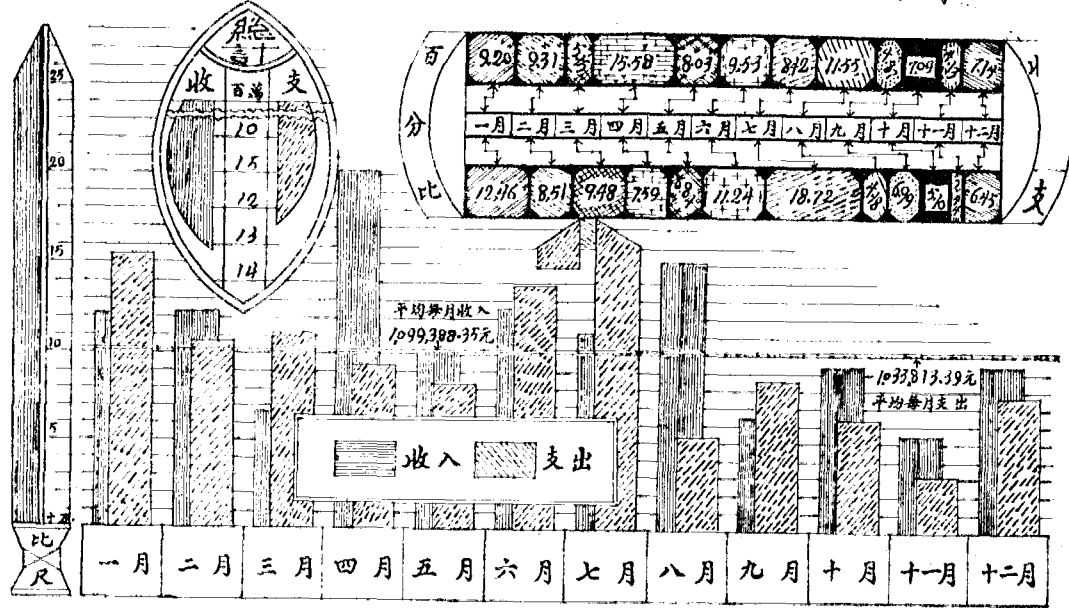 總計
收 百萬 支
10
15
12
13
14
百分比
9.20 9.31 15.58 8.03 9.53 8.42 11.55 7.09 7.14
一月 二月 三月 四月 五月 六月 七月 八月 九月 十月 十一月 十二月
12.46 8.51 9.48 7.59 11.24 18.72 6.45
支
25
20
15
10
5
十萬
比尺
平均每月收入
1,099,388.35元
1,033,813.39元
平均每月支出
收入 支出
一月 二月 三月 四月 五月 六月 七月 八月 九月 十月 十一月 十二月